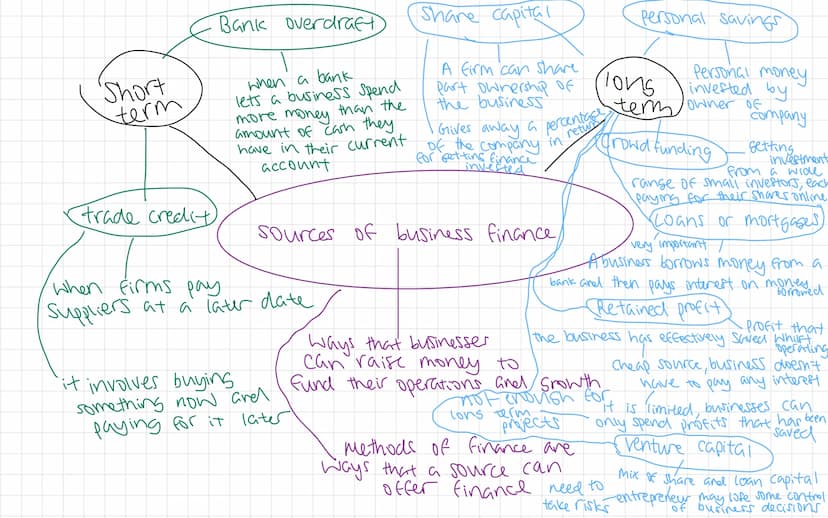 Bank overdraft
when a bank
lets a business spend
more money than the
amount of cash they
have in their current
account
short
term
trade credit
when firms pay
suppliers at a later date
it involves buying
something now and
paying for it later
sources of business finance
ways that businesses
can raise money to
fund their operations and growth
methods of finance are
ways that a source can
offer finance
share capital
A firm can share
part ownership of
the business
Gives away a percentage
of the company in return
for getting finance
invested
personal savings
personal money
invested by
owner of
company
long
term
crowdfunding
getting
investment
from a wide
range of small investors, each
paying for their shares online
Loans or mortgages
very important
A business borrows money from a
bank and then pays interest on money
borrowed
Retained profit
profit that
the business has effectively saved whilst
operating
cheap source, business doesn't
have to pay any interest
not enough for
long term
projects
it is limited, businesses can
only spend profits that has been
saved
venture capital
mix of share and loan capital
need to
take risks
entrepreneur may lose some control
of business decisions